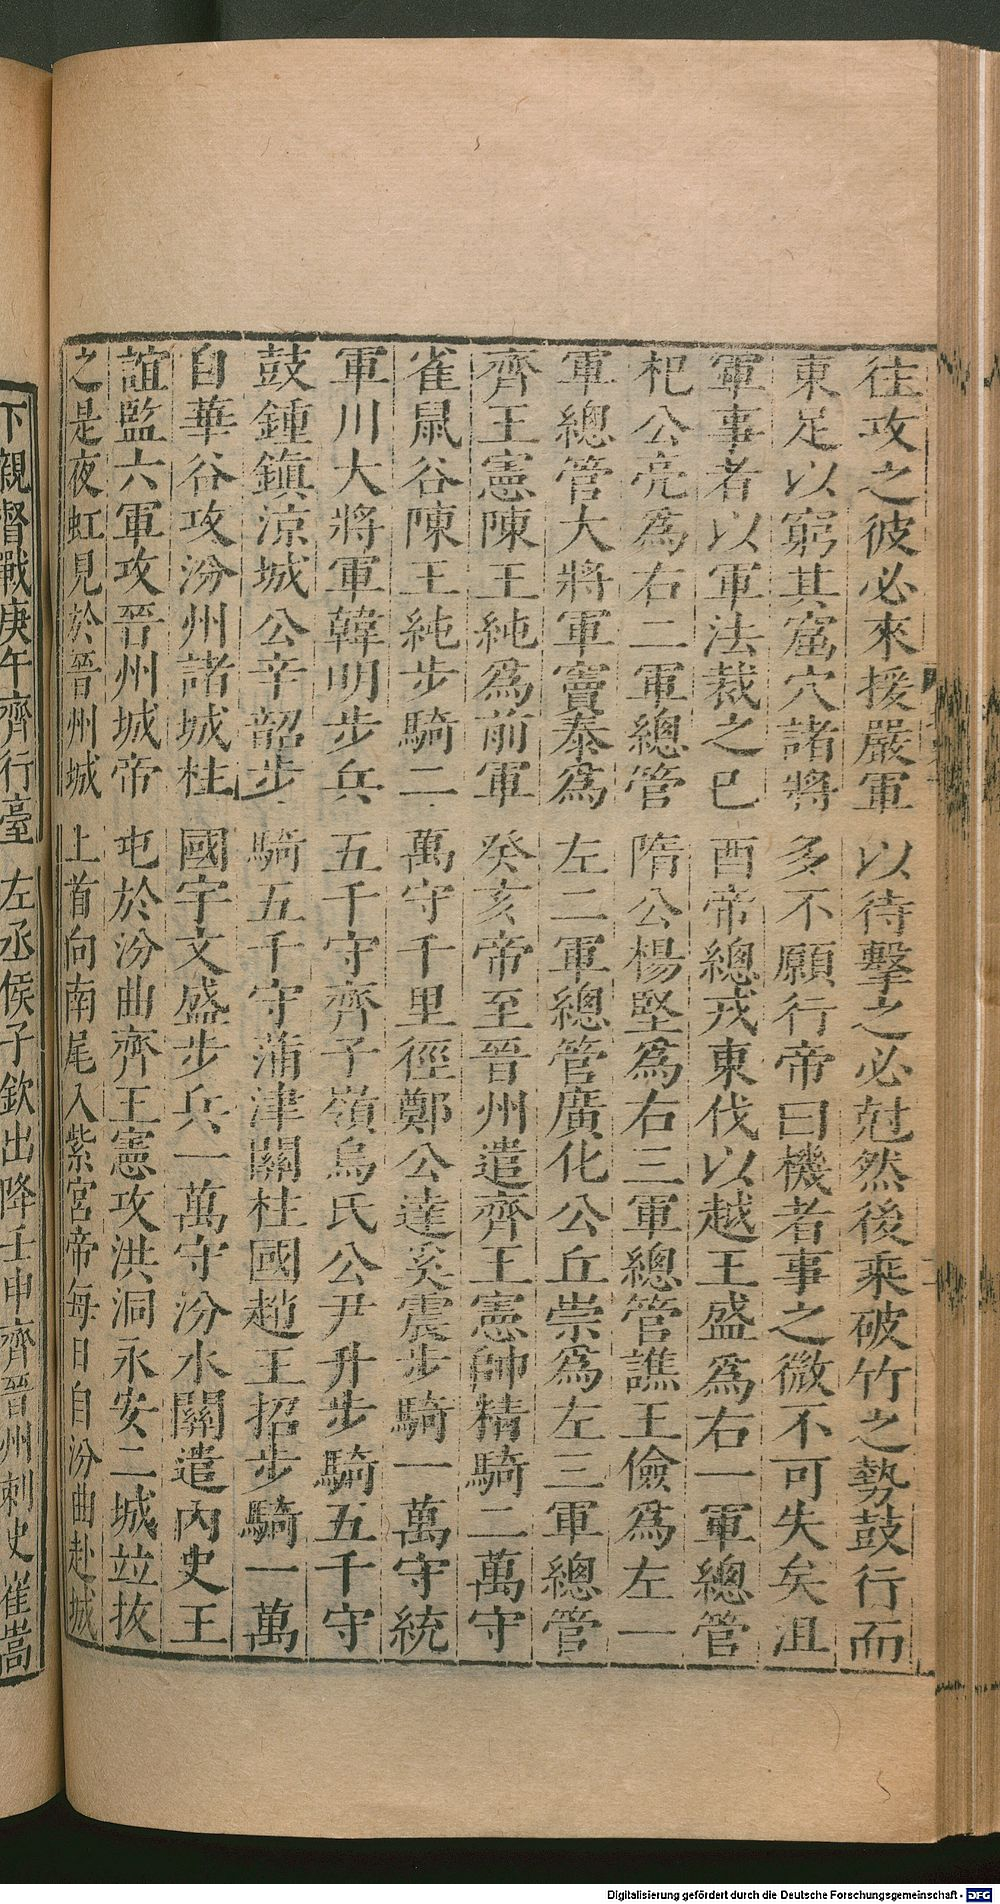 往攻之彼必來援嚴軍以待擊之必尅然後乘破竹之勢鼓行而
東足以窮其窟穴諸將多不願行帝曰機者事之微不可失矣沮
軍事者以軍法裁之己酉帝總戎東伐以越王盛爲右一軍總管
杞公亮爲右二軍總管隋公楊堅爲右三軍總管譙王儉爲左一
軍總管大將軍竇泰爲左二軍總管廣化公丘崇爲左三軍總管
齊王憲陳王純爲前軍癸亥帝至晉州遣齊王憲帥精騎二萬守
雀鼠谷陳王純步騎二萬守千里徑鄭公達奚震步騎一萬守統
軍川大將軍韓明步兵五千守齊子嶺烏氏公尹升步騎五千守
鼓鍾鎮涼城公辛韶步騎五千守蒲津關柱國趙王招步騎一萬
自華谷攻汾州諸城柱國宇文盛步兵一萬守汾水關遣內史王
誼監六軍攻晉州城帝屯於汾曲齊王憲攻洪洞永安二城竝拔
之是夜虹見於晉州城上首向南尾入紫宮帝每日自汾曲赴城
下親督戰庚午齊行臺左丞侯子欽出降壬申齊晉州刺史崔嵩
Digitalisierung gefördert durch die Deutsche Forschungsgemeinschaft - DFG